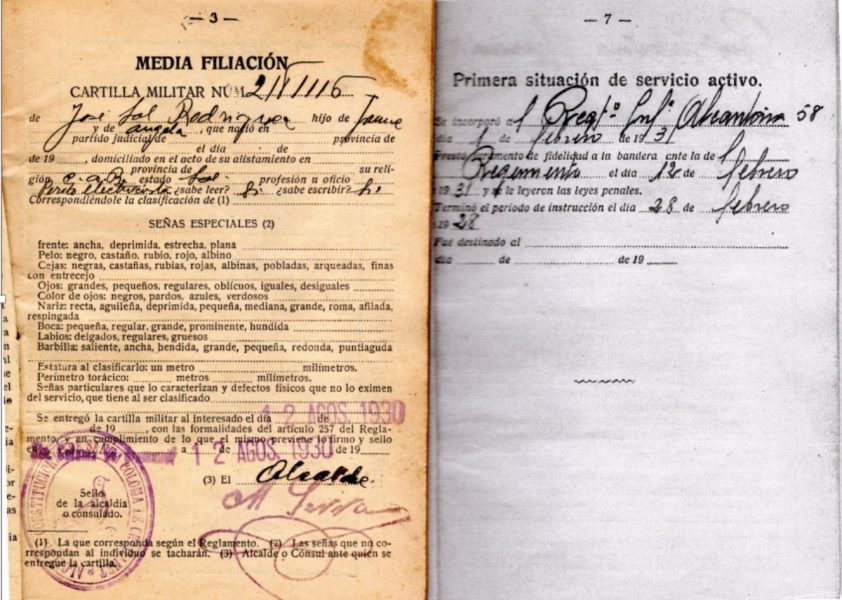 — 3 —
MEDIA FILIACIÓN
CARTILLA MILITAR NÚM.
de José Sol Rodríguez hijo de Jaime
y de angela, que nació en
partido judicial de provincia de
el día de
de 19 , domiciliado en el acto de su alistamiento en
provincia de su reli-
gión C. A. R. estado Sol. profesión u oficio
Perito electricista ¿sabe leer? Si ¿sabe escribir? Si
Correspondiéndole la clasificación de (1)
SEÑAS ESPECIALES (2)
frente: ancha, deprimida, estrecha, plana
Pelo: negro, castaño, rubio, rojo, albino
Cejas: negras, castañas, rubias, rojas, albinas, pobladas, arqueadas, finas
con entrecejo
Ojos: grandes, pequeños, regulares, oblícuos, iguales, desiguales
Color de ojos: negros, pardos, azules, verdosos
Nariz: recta, aguileña, deprimida, pequeña, mediana, grande, roma, afilada,
respingada
Boca: pequeña, regular, grande, prominente, hundida
Labios: delgados, regulares, gruesos
Barbilla: saliente, ancha, hendida, grande, pequeña, redonda, puntiaguda
Estatura al clasificarlo: un metro milímetros.
Perímetro torácico: metros milímetros.
Señas particulares que lo caracterizan y defectos físicos que no lo eximen
del servicio, que tiene al ser clasificado
Se entregó la cartilla militar al interesado el día de
12 AGOS. 1930
de 19 , con las formalidades del artículo 257 del Regla-
mento, y en cumplimiento de lo que el mismo previene lo firmo y sello
a de de 19
12 AGOS. 1930
(3) El Alcalde
M Serra
Sello
de la alcaldía
o consulado.
(1) La que corresponda según el Reglamento. (2) Las señas que no co-
rrespondan al individuo se tacharán. (3) Alcalde o Cónsul ante quien se
entregue la cartilla.
— 7 —
Primera situación de servicio activo.
Se incorporó al Regtº Infª Alcantara 58
día 1 de febrero de 1931
Prestó juramento de fidelidad a la bandera ante la del
Regimiento el día 12 de febrero
1931 y se le leyeron las leyes penales.
Terminó el período de instrucción el día 28 de febrero
1928
Fué destinado al
día de de 19